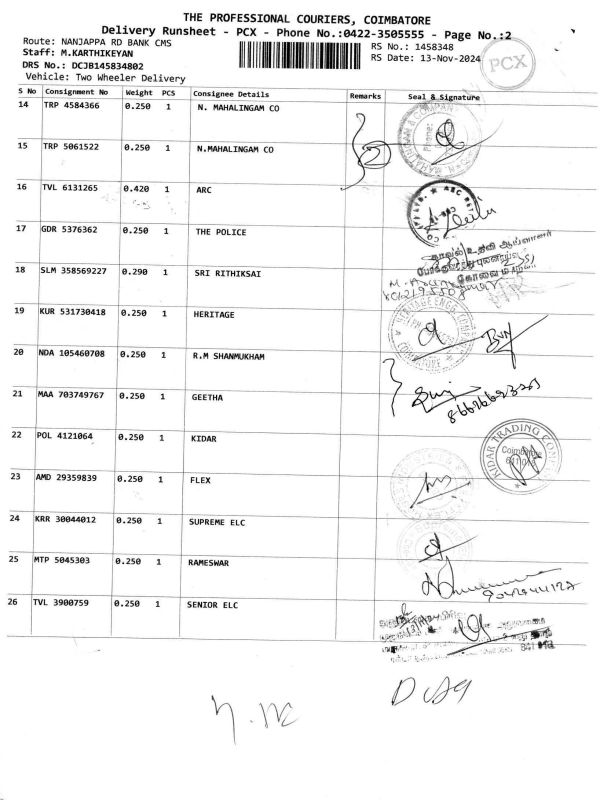 THE PROFESSIONAL COURIERS, COIMBATORE
Delivery Runsheet - PCX - Phone No.:0422-3505555 - Page No.:2
Route: NANJAPPA RD BANK CMS
RS No.: 1458348
Staff: M.KARTHIKEYAN
RS Date: 13-Nov-2024
PCX
DRS No.: DCJB145834802
Vehicle: Two Wheeler Delivery
S No Consignment No Weight PCS Consignee Details Remarks Seal & Signature
14 TRP 4584366 0.250 1 N. MAHALINGAM CO
15 TRP 5061522 0.250 1 N.MAHALINGAM CO
2
16 TVL 6131265 0.420 1 ARC
17 GDR 5376362 0.250 1 THE POLICE
காவல் உதவி ஆய்வாளர்
18 SLM 358569227 0.290 1 SRI RITHIKSAI
19 KUR 531730418 0.250 1 HERITAGE
20 NDA 105460708 0.250 1 R.M SHANMUKHAM
21 MAA 703749767 0.250 1 GEETHA
22 POL 4121064 0.250 1 KIDAR
KIDAR TRADING
Coimbatore
23 AMD 29359839 0.250 1 FLEX
24 KRR 30044012 0.250 1 SUPREME ELC
25 MTP 5045303 0.250 1 RAMESWAR
26 TVL 3900759 0.250 1 SENIOR ELC